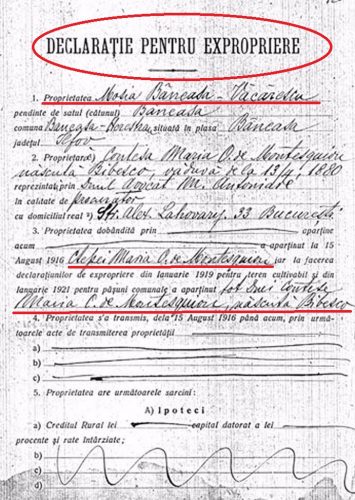 DECLARAȚIE PENTRU EXPROPRIERE
1. Proprietatea Moșia Băneasa - Văcărescu
pendinte de satul (cătunul) Băneasa
comuna Băneasa-Herăstrău, situată în plasa Băneasa
județul Ilfov
2. Proprietar Contesa Maria O. de Montesquiou
născută Bibescu, văduvă dela 1880
reprezintat prin Dnul Avocat M. Antoniade
în calitate de procurator
cu domiciliul real Str. Alex. Lahovary, 33 București
3. Proprietatea dobândită prin aparține
acum a aparținut la 15
August 1916 Ctesei Maria O. de Montesquiou iar la facerea
declarațiunilor de expropriere din Ianuarie 1919 pentru teren cultivabil și din
Ianuarie 1921 pentru pășuni comunale a aparținut tot Dnei Contese
Maria O. de Montesquiou, născută Bibescu
4. Proprietatea s'a transmis, dela 15 August 1916 până acum, prin urmă-
toarele acte de transmiterea proprietății
a)
b)
c)
d)
5. Proprietatea are următoarele sarcini:
A) Ipoteci
a) Creditul Rural lei capital datorat a lei
procente și rate întârziate;
b)
c)
d)